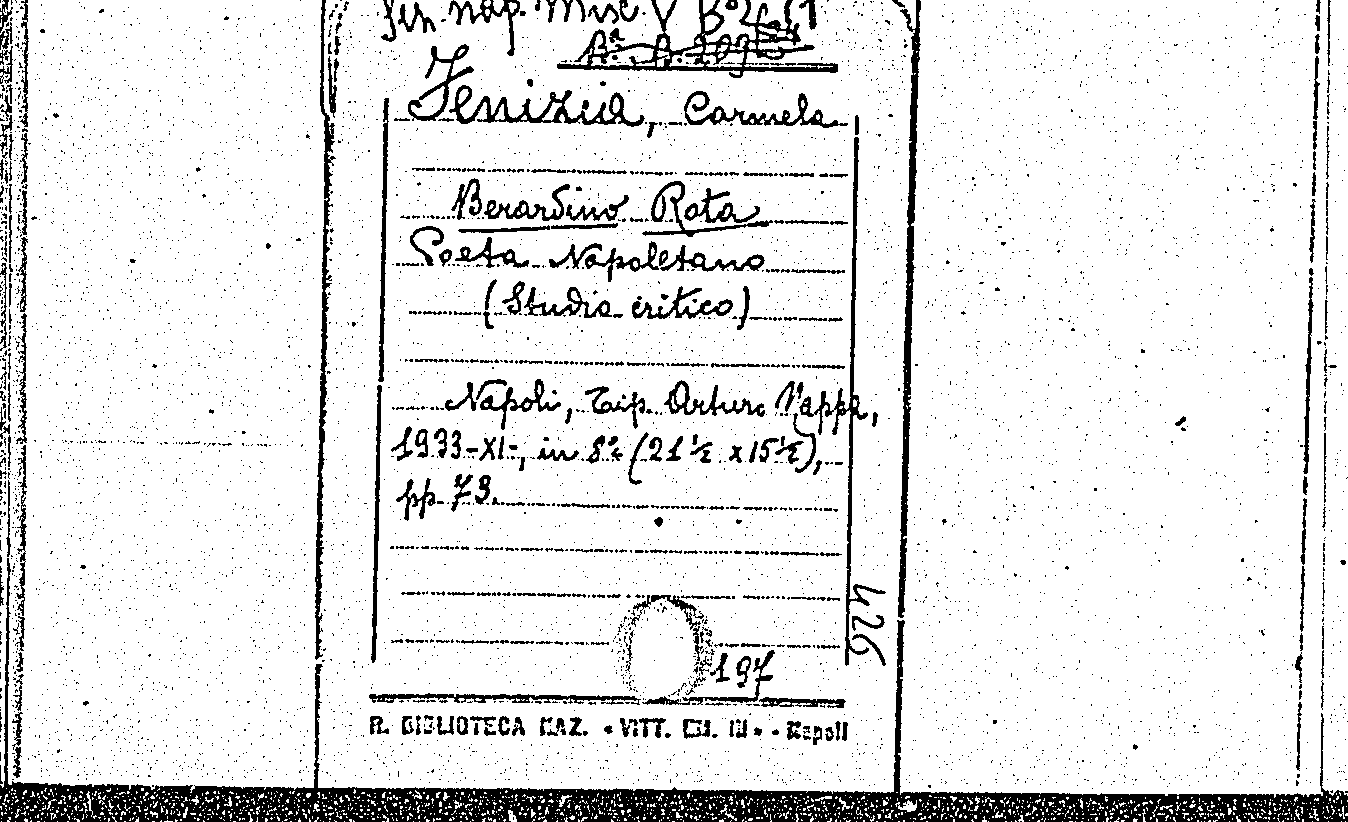 Misc. V
Fenizia, Carmela
Berardino Rota
Poeta Napoletano
(Studio critico)
Napoli, Tip. Arturo Nappa,
1933-XI-, in 8º (21 ½ x 15 ½),
pp. 73.
426
197
R. BIBLIOTECA NAZ. «VITT. EM. III» - Napoli